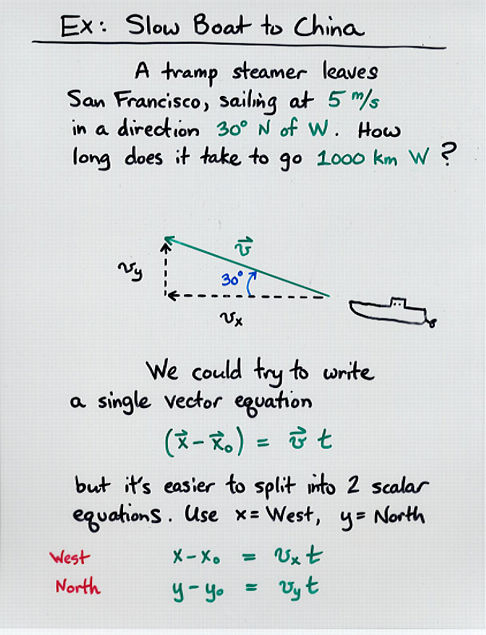 Ex: Slow Boat to China
A tramp steamer leaves
San Francisco, sailing at 5 m/s
in a direction 30° N of W. How
long does it take to go 1000 km W ?
v⃗
vy
30°
vx
We could try to write
a single vector equation
(x⃗ - x⃗₀) = v⃗ t
but it's easier to split into 2 scalar
equations. Use x = West, y = North
West x - x₀ = vx t
North y - y₀ = vy t